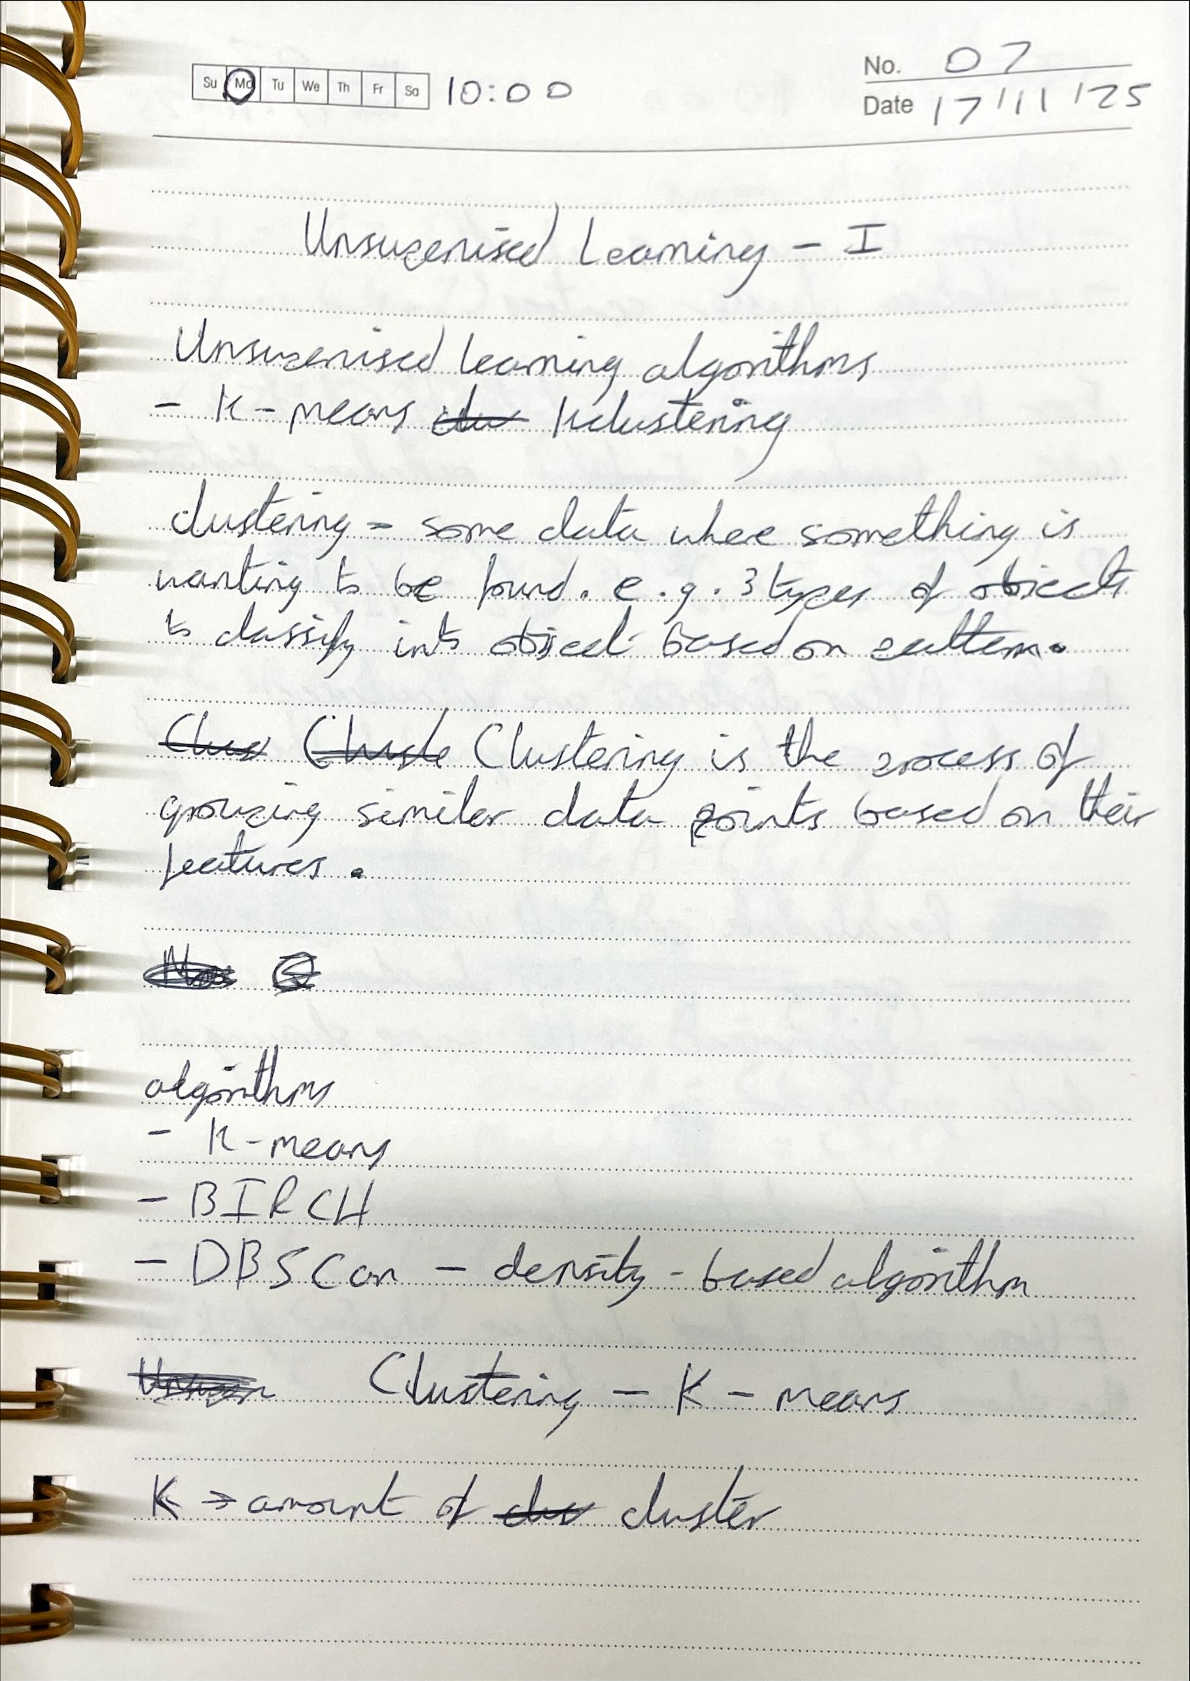 Su Mo Tu We Th Fr Sa 10:00
No. 07
Date 17/11/25
Unsupervised Learning - I
Unsupervised learning algorithms
- K-means clu Kclustering
clustering - some data where something is
wanting to be found. e.g. 3 types of objects
to classify into object based on pattern.
Clus Cluste Clustering is the process of
grouping similar data points based on their
features.
algorithms
- K-means
- BIRCH
- DBSCan - density-based algorithm
Clustering - K - means
K → amount of clu cluster